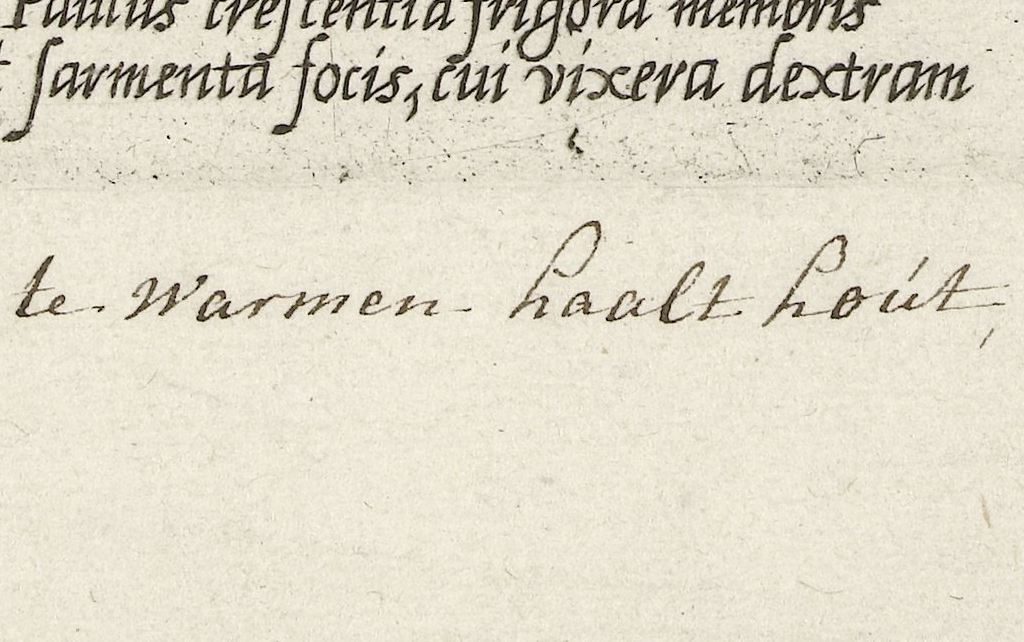 Paulus creſcentia frigora membris
ſarmenta focis, cui vixera dextram
te warmen haalt hoút,